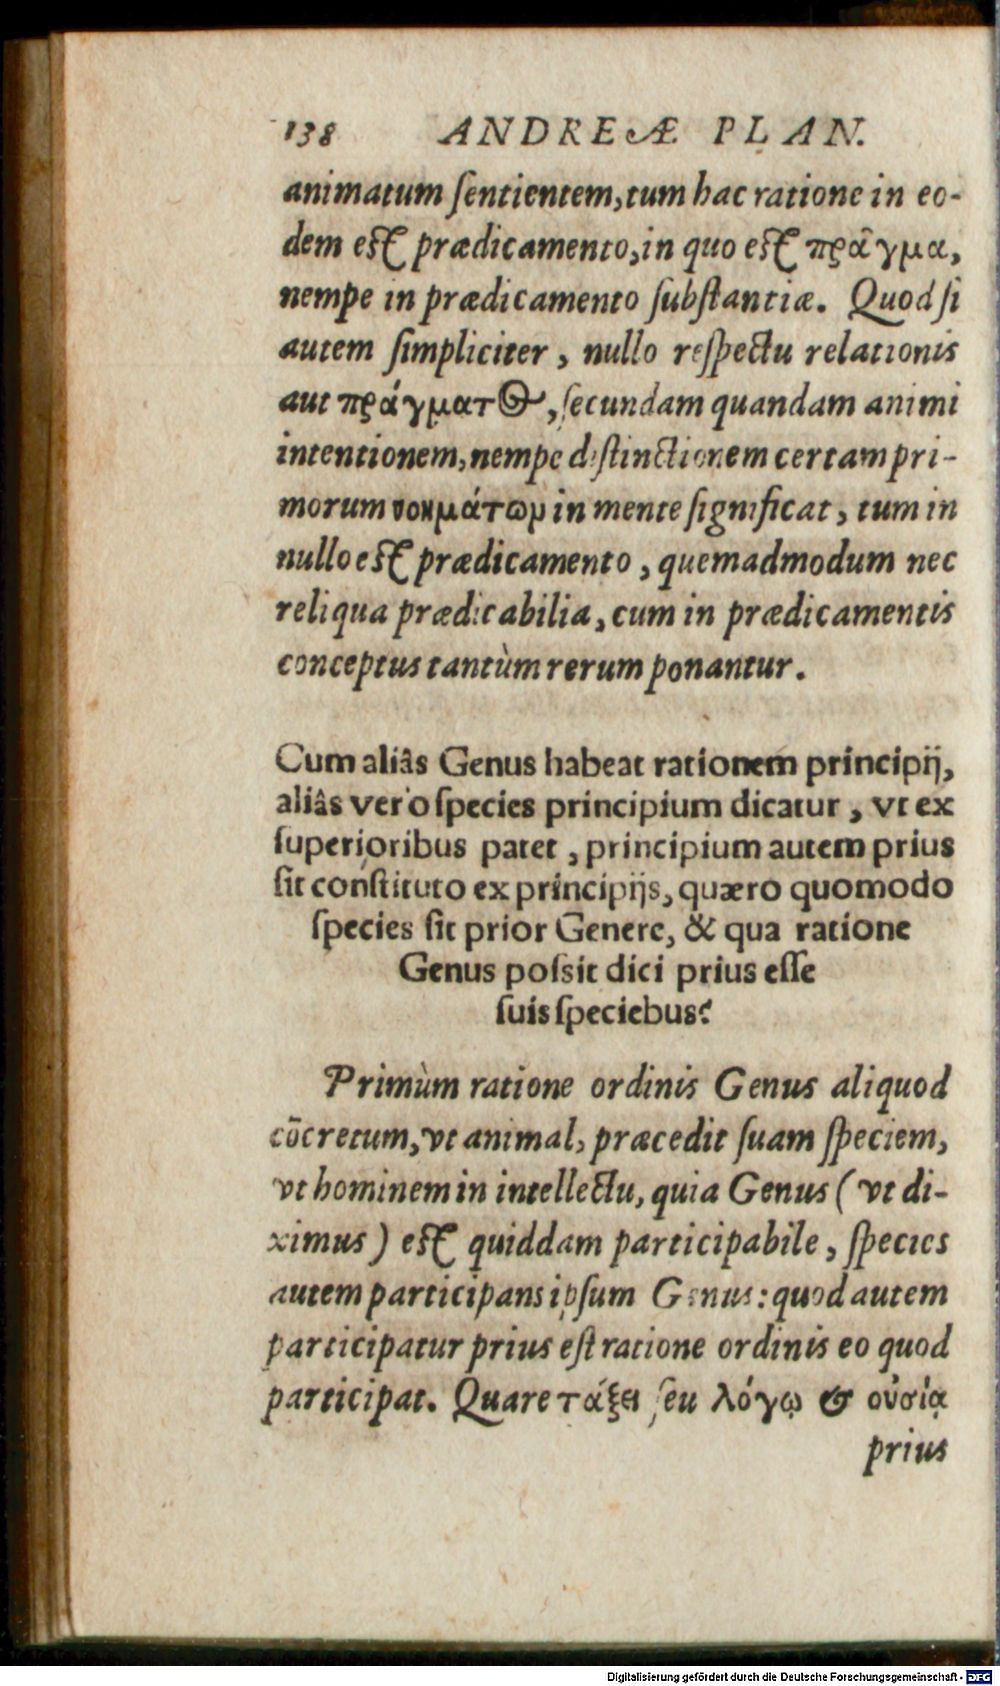 138 ANDREÆ PLAN.
animatum ſentientem, tum hac ratione in eo-
dem eſt prædicamento, in quo eſt πρᾶγμα,
nempe in prædicamento ſubſtantiæ. Quod ſi
autem ſimpliciter, nullo reſpectu relationis
aut πράγματος, ſecundam quandam animi
intentionem, nempe diſtinctionem certam pri-
morum νοημάτωμ in mente ſignificat, tum in
nullo eſt prædicamento, quemadmodum nec
reliqua prædicabilia, cum in prædicamentis
conceptus tantùm rerum ponantur.
Cum aliâs Genus habeat rationem principij,
aliâs verò ſpecies principium dicatur, vt ex
ſuperioribus patet, principium autem prius
ſit conſtituto ex principijs, quæro quomodo
ſpecies ſit prior Genere, & qua ratione
Genus poſsit dici prius eſſe
ſuis ſpeciebus?
Primùm ratione ordinis Genus aliquod
cōcretum, vt animal, præcedit ſuam ſpeciem,
vt hominem in intellectu, quia Genus (vt di-
ximus) eſt quiddam participabile, ſpecies
autem participans ipſum Genus: quod autem
participatur prius eſt ratione ordinis eo quod
participat. Quare τάξει ſeu λόγῳ & οὐσίᾳ
prius
Digitalisierung gefördert durch die Deutsche Forschungsgemeinschaft - DFG